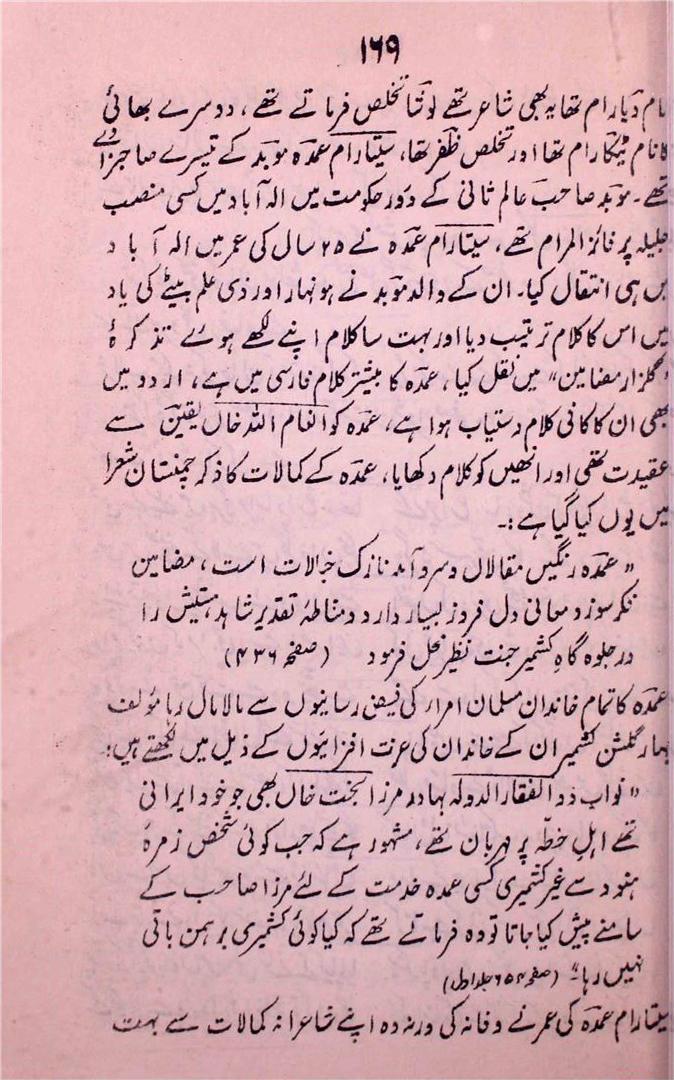 ۱۶۹
نام دیا رام تھا یہ بھی شاعر تھے لوتؔا تخلص فرماتے تھے، دوسرے بھائی
کا نام ٹیکا رام تھا اور تخلص ظفر تھا، سیتا رام عمدہ موبد کے تیسرے صاحبزادے
تھے۔ موبد صاحب عالم ثانی کے دور حکومت میں الہ آباد میں کسی منصب
جلیلہ پر فائز المرام تھے، سیتا رام عمدہ نے ۲۵ سال کی عمر میں الہ آباد
میں ہی انتقال کیا۔ ان کے والد موبد نے ہونہار اور ذی علم بیٹے کی یاد
میں اس کا کلام ترتیب دیا اور بہت سا کلام اپنے لکھے ہوئے تذکرۂ
"گلزار مضامین" میں نقل کیا، عمدہ کا بیشتر کلام فارسی میں ہے، اردو میں
بھی ان کا کافی کلام دستیاب ہوا ہے، عمدہ کو انعام اللہ خاں یقین سے
عقیدت تھی اور انھیں کو کلام دکھایا، عمدہ کے کمالات کا ذکر چمنستان شعرا
میں یوں کیا گیا ہے:۔
"عمدہ رنگیں مقالاں و سرد آمد نازک خیالات است، مضامین
فکر سوز و معانی دل فروز بسیار دارد و مشاطۂ تقدیر شاہد ہستیش را
در جلوہ گاہِ کشمیر جنت نظیر نخل فرمود (صفحہ ۴۳۶)
عمدہ کا تمام خاندان مسلمان امراء کی فیض رسانیوں سے مالا مال رہا مؤلف
بہار گلشن کشمیر ان کے خاندان کی عزت افزائیوں کے ذیل میں لکھتے ہیں:
"نواب ذوالفقار الدولہ بہادر مرزا نجف خاں بھی جو خود ایرانی
تھے اہلِ خطّہ پر مہربان تھے، مشہور ہے کہ جب کوئی شخص زمرۂ
ہنود سے غیر کشمیری کسی عمدہ خدمت کے لئے مرزا صاحب کے
سامنے پیش کیا جاتا تو وہ فرماتے تھے کہ کیا کوئی کشمیری برہمن باقی
نہیں رہا۔" (صفحہ ۶۵۴ جلد اول)
سیتا رام عمدہ کی عمر نے وفا نہ کی ورنہ وہ اپنے شاعرانہ کمالات سے بہت